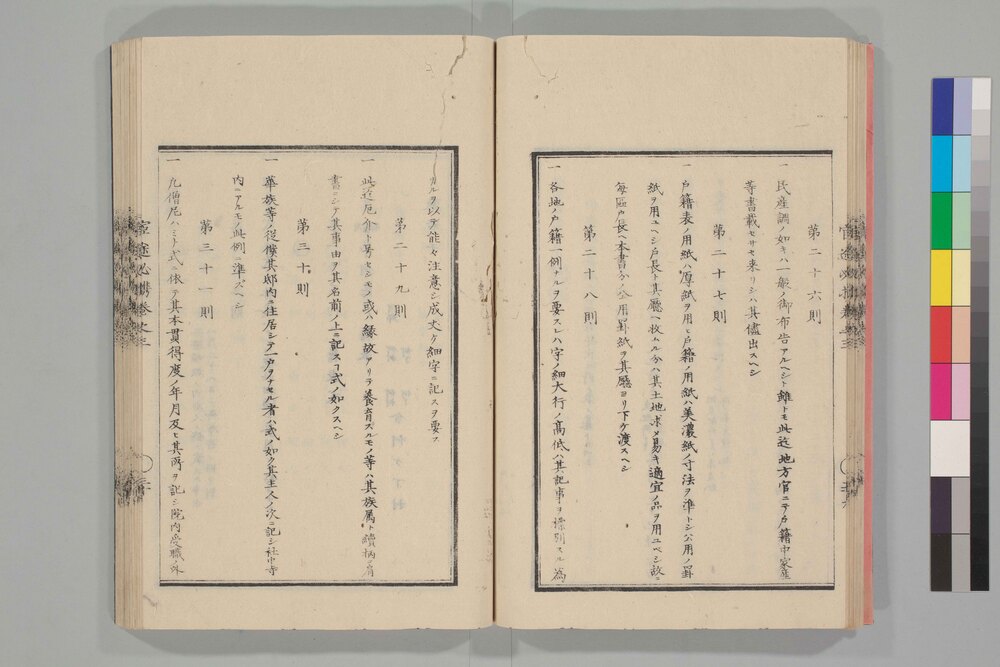 第二十六則
一 民産調ノ如キハ一般ノ御布告アルヘシト雖トモ此迄地方官ニテ戸籍中家産
等書載セサセ来リシハ其儘出スヘシ
第二十七則
一 戸籍表ノ用紙ハ厚紙ヲ用ヒ戸籍ノ用紙ハ美濃紙ノ寸法ヲ準トシ公用ノ罫
紙ヲ用ユヘシ戸長ト其廳ヘ收ムル分ハ其土地求メ易キ適宜ノ品ヲ用ユヘシ故ニ
毎區戸長ヘ本書分ノ公用罫紙ヲ其廳ヨリ下ケ渡スヘシ
第二十八則
一 各地ノ戸籍一例ナルヲ要スレハ字ノ細大行ノ高低ハ其記事ヲ標別スル為
ナルヲ以テ能々注意シ成丈ケ細字ニ記スヲ要ス
第二十九則
一 此迄厄介ト号セシモノ或ハ縁故アリテ養育スルモノ等ハ其族属ト續柄ヲ肩
書ニシテ其事由ヲ其名前ノ上ニ記スヿ式ノ如クスヘシ
第三十則
一 華族等ノ従僕其邸内ニ住居シテ一戸ヲナセル者ハ式ノ如ク其主人ノ次ニ記シ社中寺
内ニアルモノ此例ニ準スヘシ
第三十一則
一 凡僧尼ハミナ式ニ依テ其本貫得度ノ年月及ヒ其両ヲ記シ院内受職ノ外